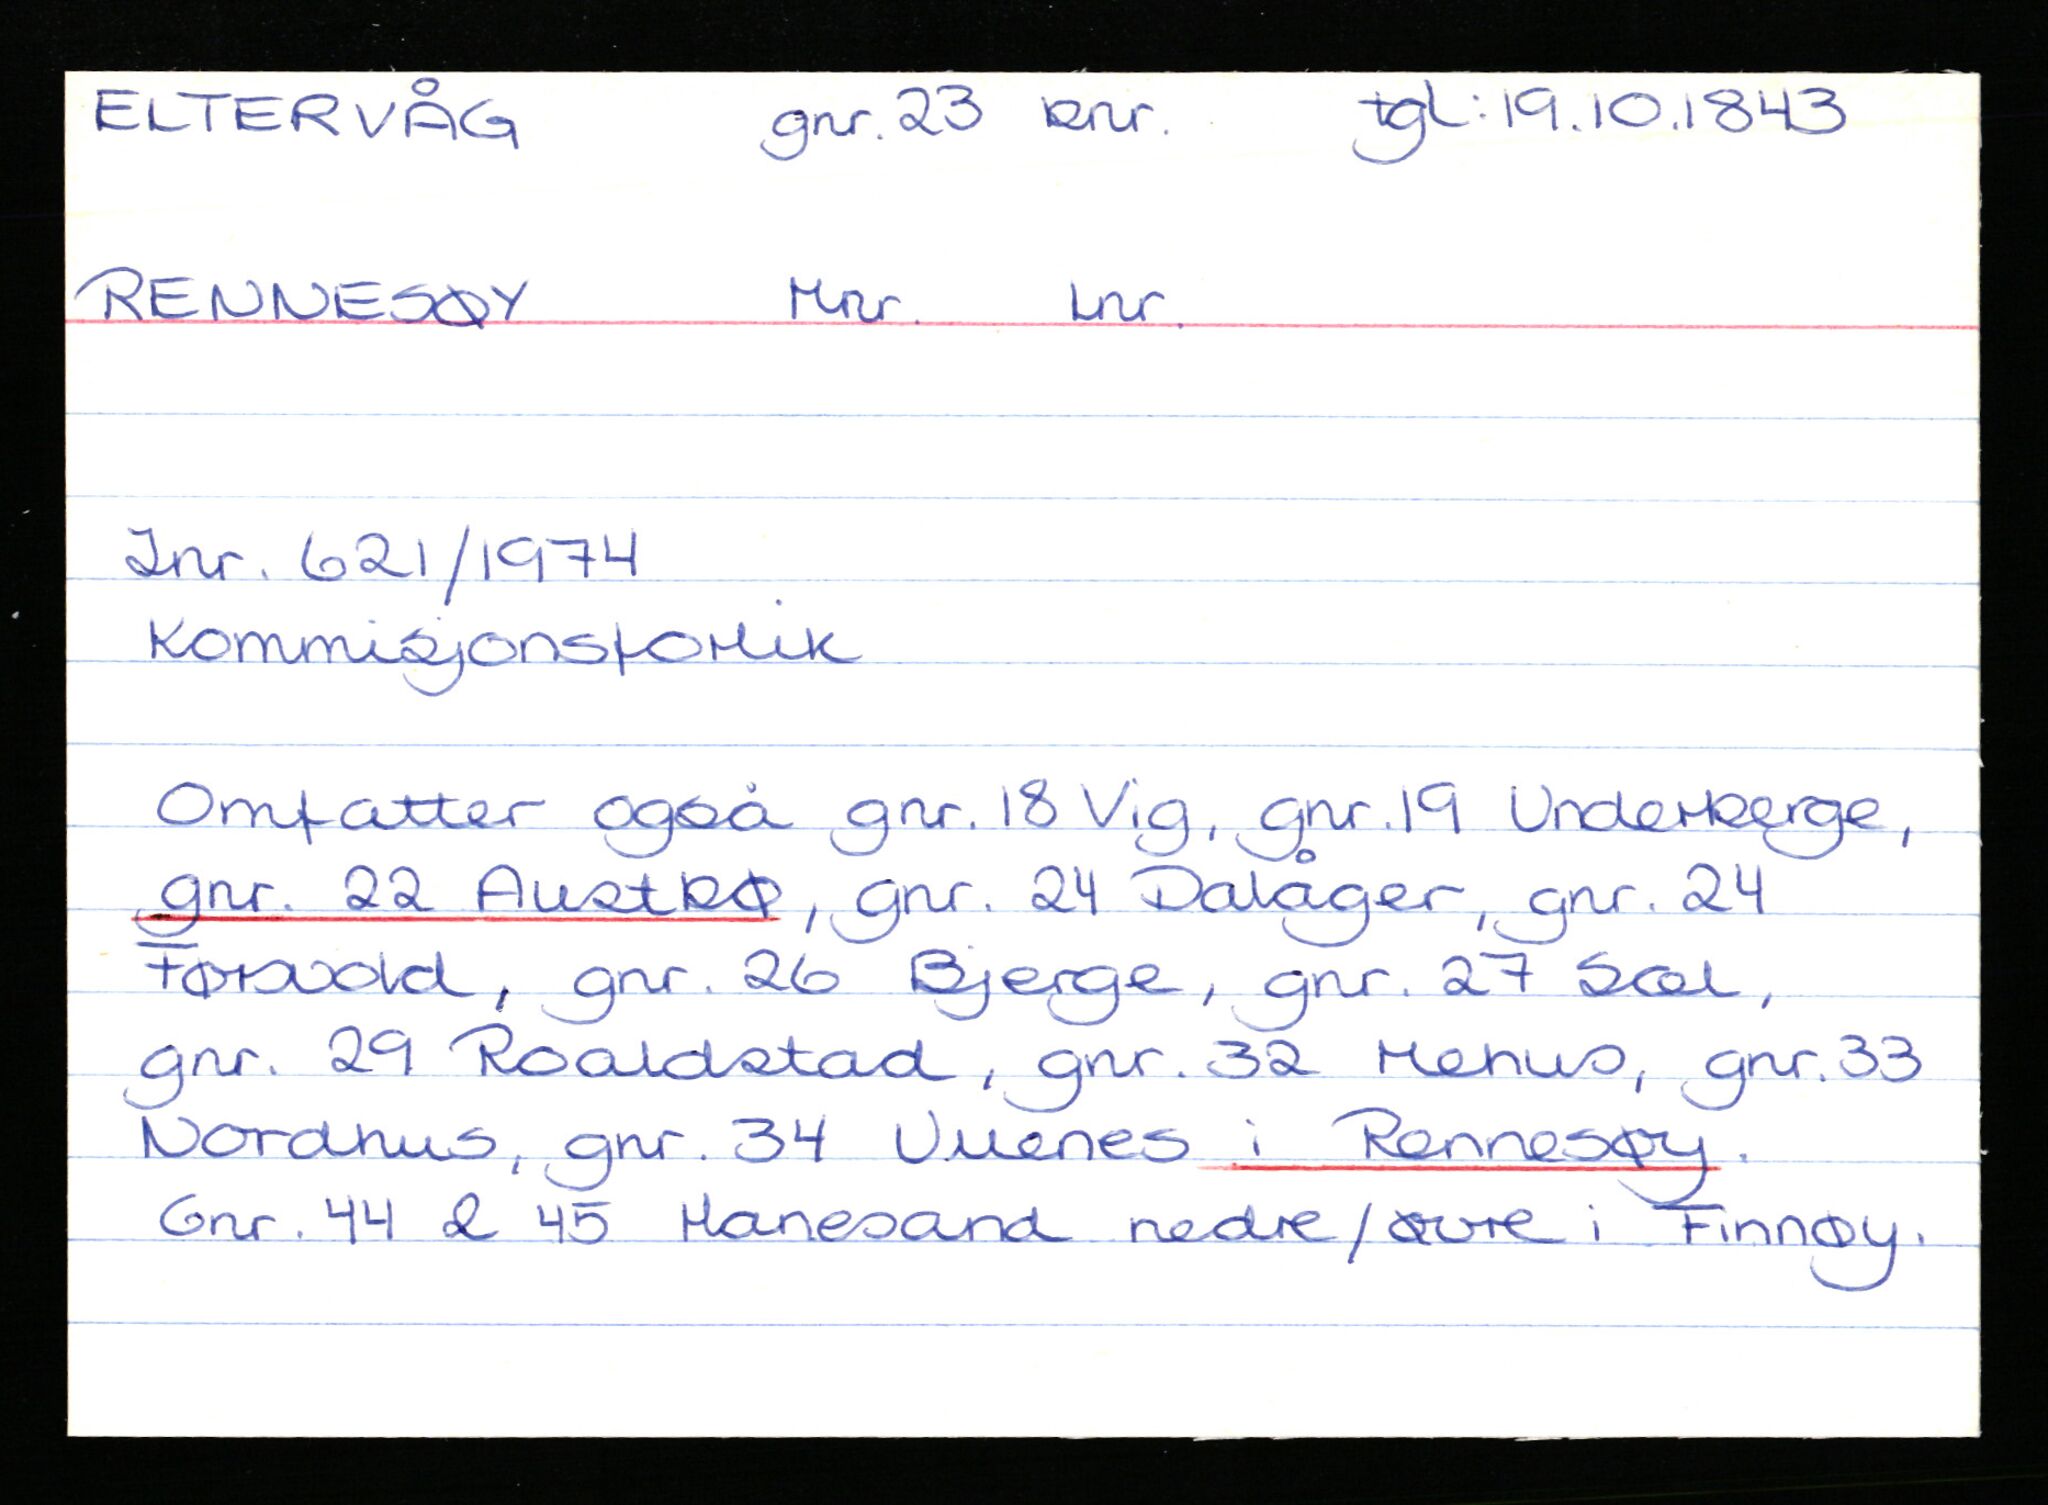 ELTERVÅG gnr. 23 bnr. tgl: 19.10.1843
RENNESØY Mnr. Lnr.
Jnr. 621/1974
Kommisjonsforlik
Omfatter også gnr. 18 Vig, gnr. 19 Underberge,
gnr. 22 Austbø, gnr. 24 Dalåger, gnr. 24
Førsvold, gnr. 26 Bjerge, gnr. 27 Sæl,
gnr. 29 Roaldstad, gnr. 32 Henus, gnr. 33
Nordhus, gnr. 34 Vuenes i Rennesøy.
Gnr. 44 & 45 Hanesand nedre/øvre i Finnøy.